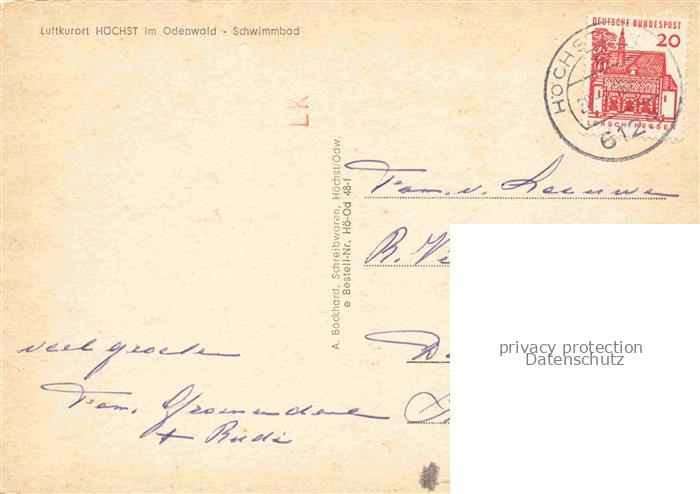 Luftkurort HÖCHST im Odenwald - Schwimmbad
DEUTSCHE BUNDESPOST
20
LORSCH/HESSEN
HÖCHST
612
LK
A. Bockhard, Schreibwaren, Höchst/Odw.
e Bestell-Nr. Hö-Od 48-f
Fam. v. Leeuwe
R. Vi
D
privacy protection
Datenschutz
veel groeten
Fam. Groenendaal
+ Rudi